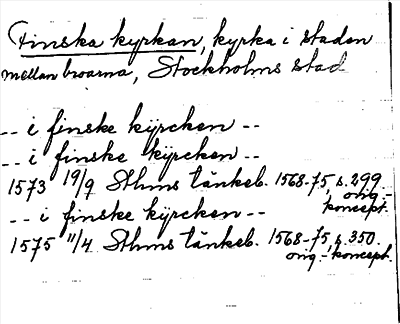 Finska kyrkan, kyrka i staden
mellan broarna, Stockholms stad
-- i finske kÿrcken --
-- i finske kÿrcken --
1573 19/9 Sthms tänkeb. 1568-75, s. 299
orig.-
koncept.
-- i finske kÿrcken --
1575 11/4 Sthms tänkeb. 1568-75, s. 350.
orig.-koncept.